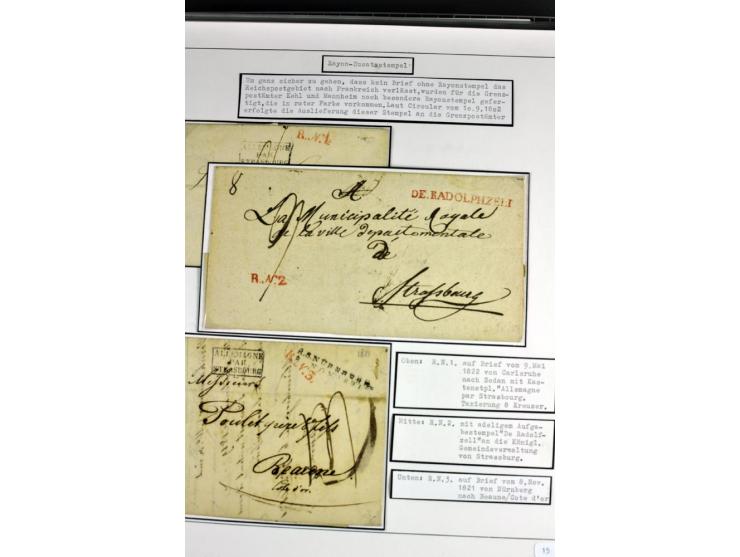 Rayon-Zusatzstempel:
Um ganz sicher zu gehen, dass kein Brief ohne Rayonstempel das
Reichspostgebiet nach Frankreich verlässt, wurden für die Grenz-
postämter Kehl und Mannheim noch besondere Rayonstempel gefer-
tigt, die in roter Farbe vorkommen. Laut Circuler vom
erfolgte die Auslieferung dieser Stempel an die Grenzpostämter
R.N.1.
ALLEMAGNE
PAR
STRASBOURG
8
A
DE.RADOLPHZELL
La Municipalité Royale
de la ville departementale
de
R.N.2.
Strasbourg
ALLEMAGNE
PAR
STRASBOURG
R.N.3.
Messieurs
Beaune
Cote d'or
Oben: R.N.1. auf Brief vom 9.Mai
1822 von Carlsruhe
nach Sedan mit Kas-
tenstpl."Allemagne
par Strasbourg.
Taxierung 8 Kreuzer.
Mitte: R.N.2. mit adeligem Aufga-
bestempel"De Radolf-
zell"an die Königl.
Gemeindeverwaltung
von Strassburg.
Unten: R.N.3. auf Brief vom 8.Nov.
1821 von Nürnberg
nach Beaune/Cote d'or
15